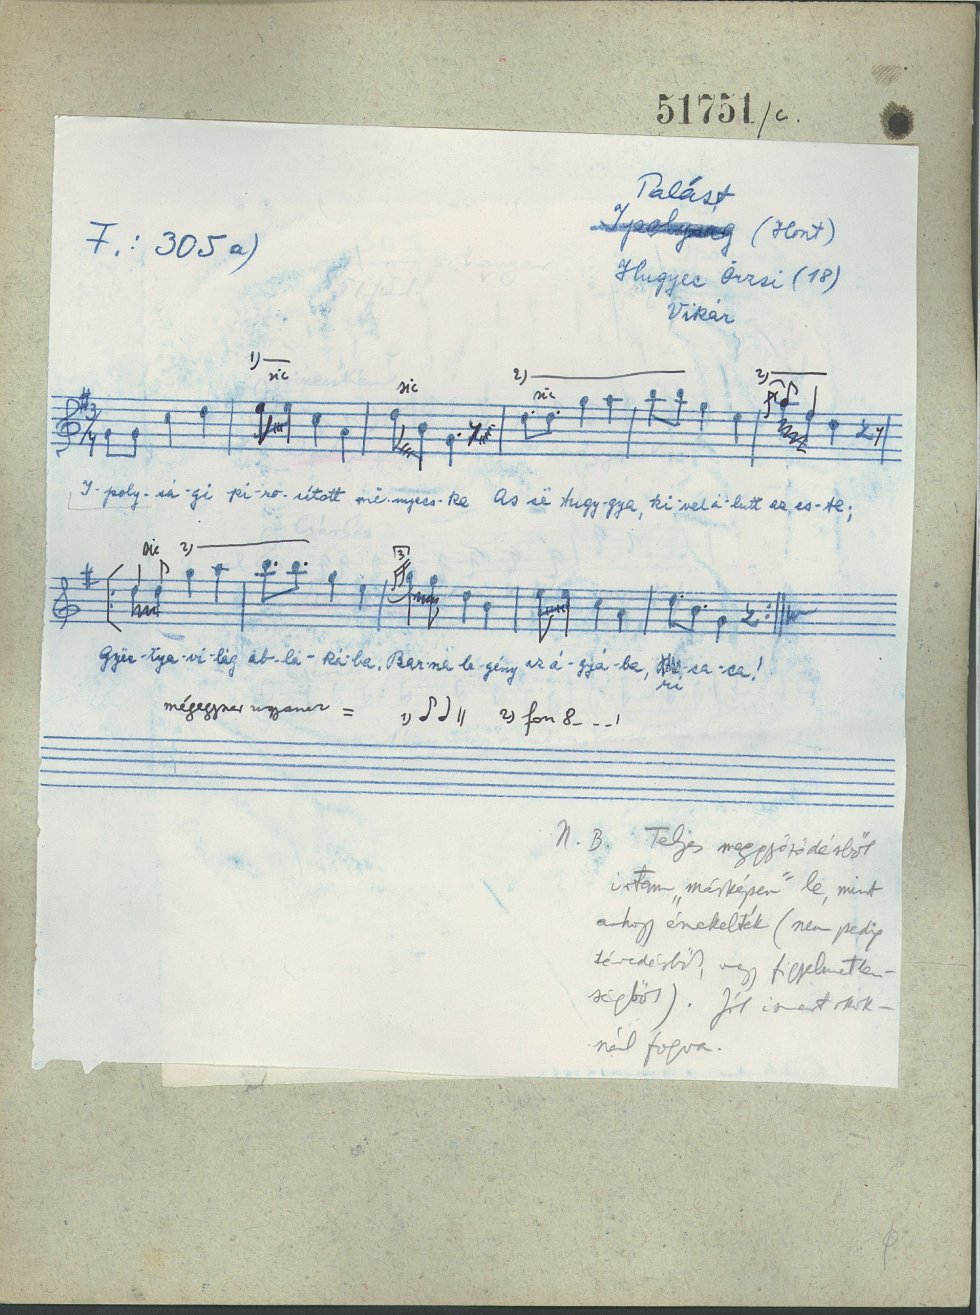 51751/c.
Palást
Ipolyság (Hont)
F.: 305 a)
Hugyec Örzsi (18)
Vikár
1) sic sic 2) sic 2)
3/4
I-poly-sá-gi ki-ro-sitott më-nyecs-ke As së tugy-gya, ki-vel á-lutt az es-te;
sic 2) 3
Gyër-tya-vi-lág ab-la-ká-ba, Bar-na le-gény az á-gyá-ba, sa-ca!
ri
mégegyszer ugyanez = 1) 2) fon 8---!
N. B. Teljes meggyőződésből
irtam „másképen" le, mint
ahogy énekelték (nem pedig
tévedésből, vagy figyelmetlen-
ségből). Jól ismert okok-
nál fogva.